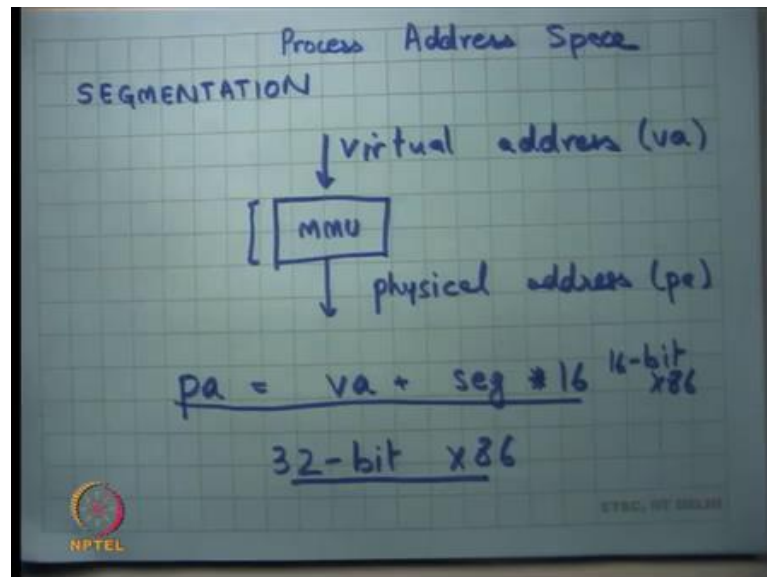 Process Address Space
SEGMENTATION
virtual address (va)
MMU
physical address (pa)
pa = va + seg * 16 16-bit x86
32-bit x86
NPTEL
ETSC, IIT DELHI